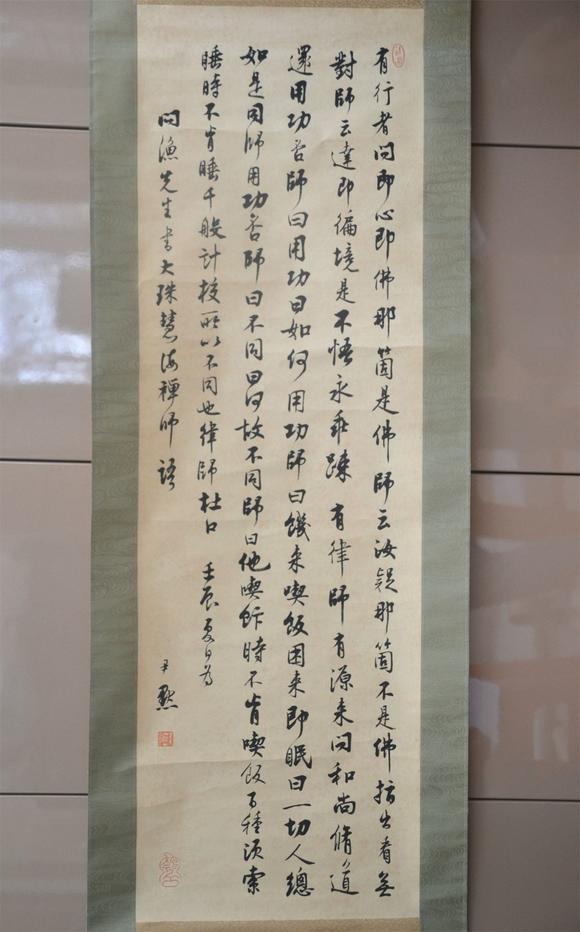 有行者問即心即佛那箇是佛師云汝疑那箇不是佛指出看無
對師云達即徧境是不悟永乖踈 有律師有源来問和尚脩道
還用功否師曰用功曰如何用功師曰饑来喫飯困来即眠曰一切人總
如是同師用功否師曰不同曰何故不同師曰他喫飯時不肯喫飯百種須索
睡時不肯睡千般計校所以不同也律師杜口 壬辰夏日為
問漁先生書大珠慧海禪師語
尹默